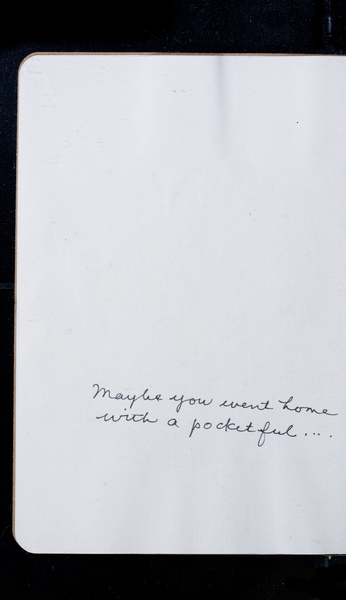 Maybe you went home
with a pocketful....